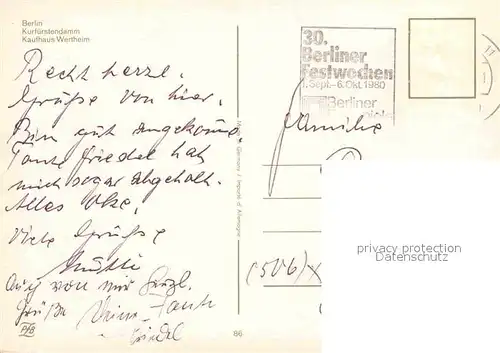 Berlin
Kurfürstendamm
Kaufhaus Wertheim
30.
Berliner
Festwochen
1. Sept.–6. Okt. 1980
Berliner
Familie
Recht herzl.
Grüße von hier.
Bin gut angekomm.
Tante Friedel hat
mich sogar abgeholt.
Alles Oke.
Viele Grüße
Mutti
Auch von mir herzl.
Grüße Deine Tante
Friedel
PfB
86
privacy protection
Datenschutz
(506)